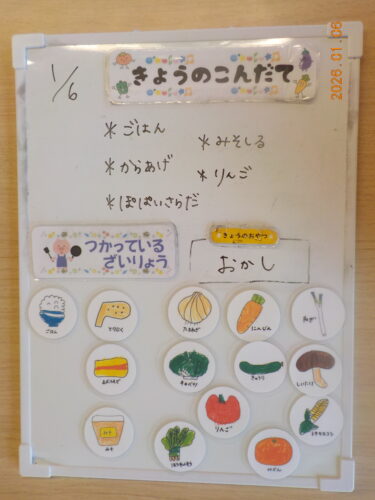 2026.01.06
1/6
きょうのこんだて
*ごはん
*みそしる
*からあげ
*りんご
*ぽぱいさらだ
つかっている
ざいりょう
きょうのおやつ
おかし
ごはん
とりにく
たまねぎ
にんじん
ねぎ
キャベツ
きゅうり
しいたけ
みそ
ほうれんそう
りんご
みかん
トウモロコシ